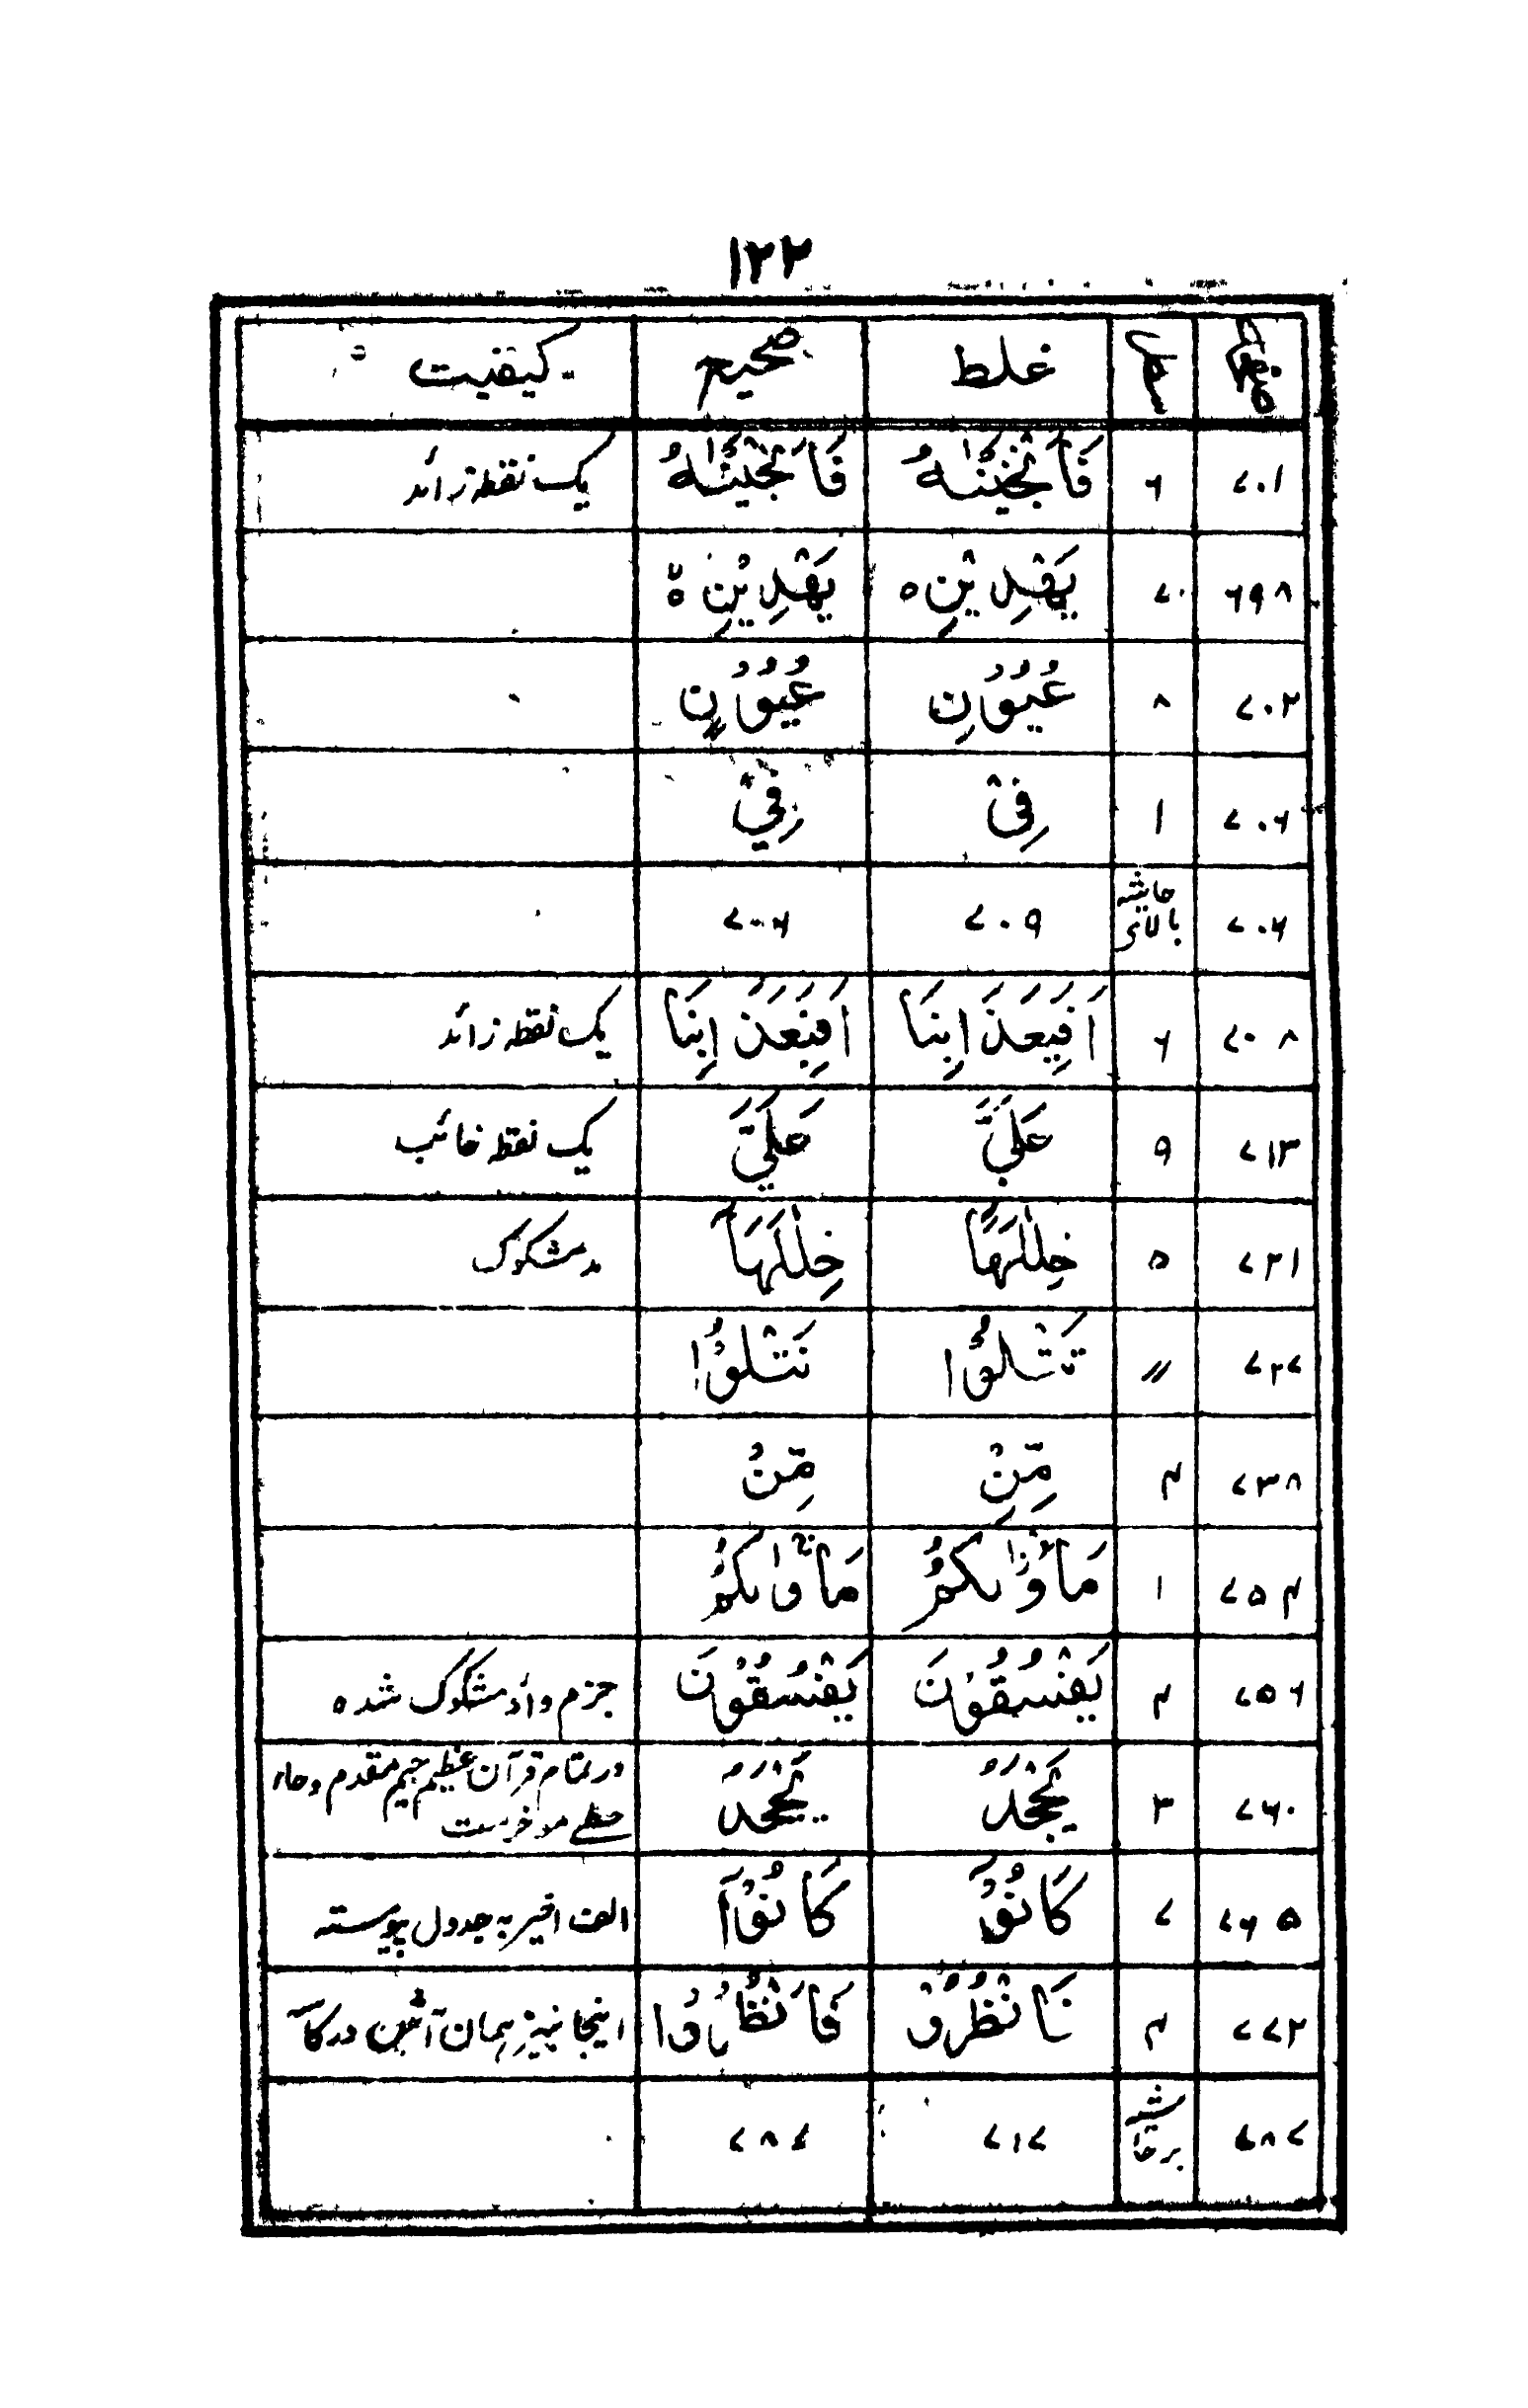 ۱۲۲
صفحه سطر غلط صحیح کیفیت
۷۰۱ ۶ فَاَنْجَیْنٰهُ فَاَنْجَیْنٰهُ یک نقطه زائد
۶۹۸ ۷ یَهْدِیْنِ ه یَهْدِیْنِ ه
۷۰۲ ۸ عُیُوْنِ عُیُوْنٍ
۷۰۶ ۱ فِیْ فِیْ
۷۰۶ حاشیه بالائی ۷۰۹ ۷۰۶
۷۰۸ ۶ اَفَبِعَذَ ابِنَا اَفَبِعَذَ ابِنَا یک نقطه زائد
۷۱۳ ۹ عَلَیَّ عَلَیَّ یک نقطه غائب
۷۲۱ ۵ خِلٰلَهَا خِلٰلَهَآ مد مشکوک
۷۲۷ // تَتْلُوْا نَتْلُوْا
۷۳۸ ۴ مِّنِ مِّنْ
۷۵۴ ۱ مَاْوٰىکُمُ مَاْوٰىکُمُ
۷۵۶ ۴ یَفْسُقُوْنَ یَفْسُقُوْنَ جزم واؤ مشکوک شده
۷۶۰ ۳ یَجْحَدُ یَجْحَدُ در تمام قرآن عظیم جیم مقدم و حاء
حطی موخرست
۷۶۵ ۷ کَانُوْ کَانُوْآ الف اخیر به جدول پیوسته
۷۷۲ ۴ نَانْظُرُوْ فَانْظُرُوْا اینجا نیز همان آتش در کاٰ
۷۸۷ برحاشیه ۷۱۷ ۷۸۷